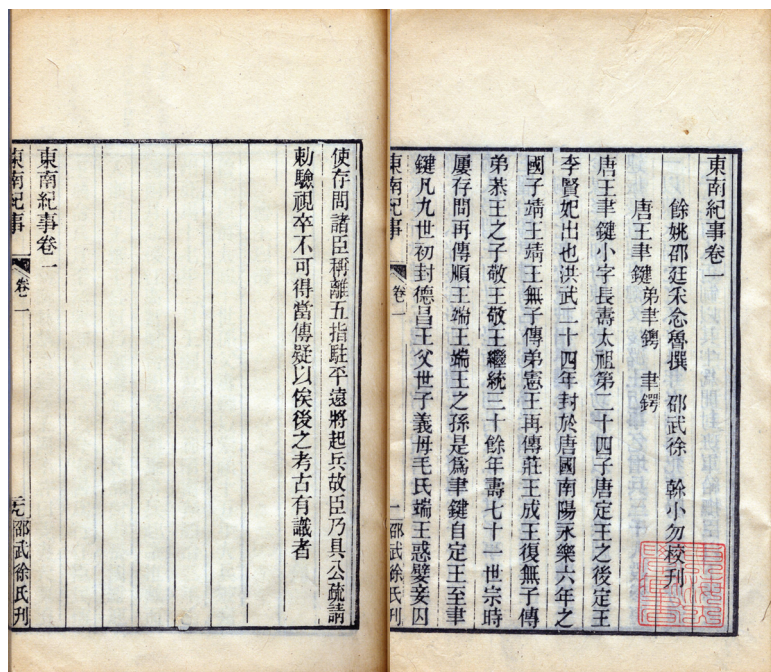 東南紀事卷一
餘姚邵廷采念魯撰 邵武徐榦小勿校刊
唐王聿鍵 弟聿鐭 聿鍔
唐王聿鍵小字長壽太祖第二十四子唐定王之後定王
李賢妃出也洪武二十四年封於唐國南陽永樂六年之
國子靖王靖王無子傳弟憲王再傳莊王成王復無子傳
弟恭王之子敬王敬王繼統三十餘年壽七十一世宗時
屢存問再傳順王端王端王之孫是為聿鍵自定王至聿
鍵凡九世初封德昌王父世子義母毛氏端王惑嬖妾囚
東南紀事 卷一 一 邵武徐氏刊
使存問諸臣稱離五指駐平遠將起兵故臣乃具公疏請
勅驗視卒不可得當傳疑以俟後之考古有識者
東南紀事卷一
東南紀事 卷一 邵武徐氏刊